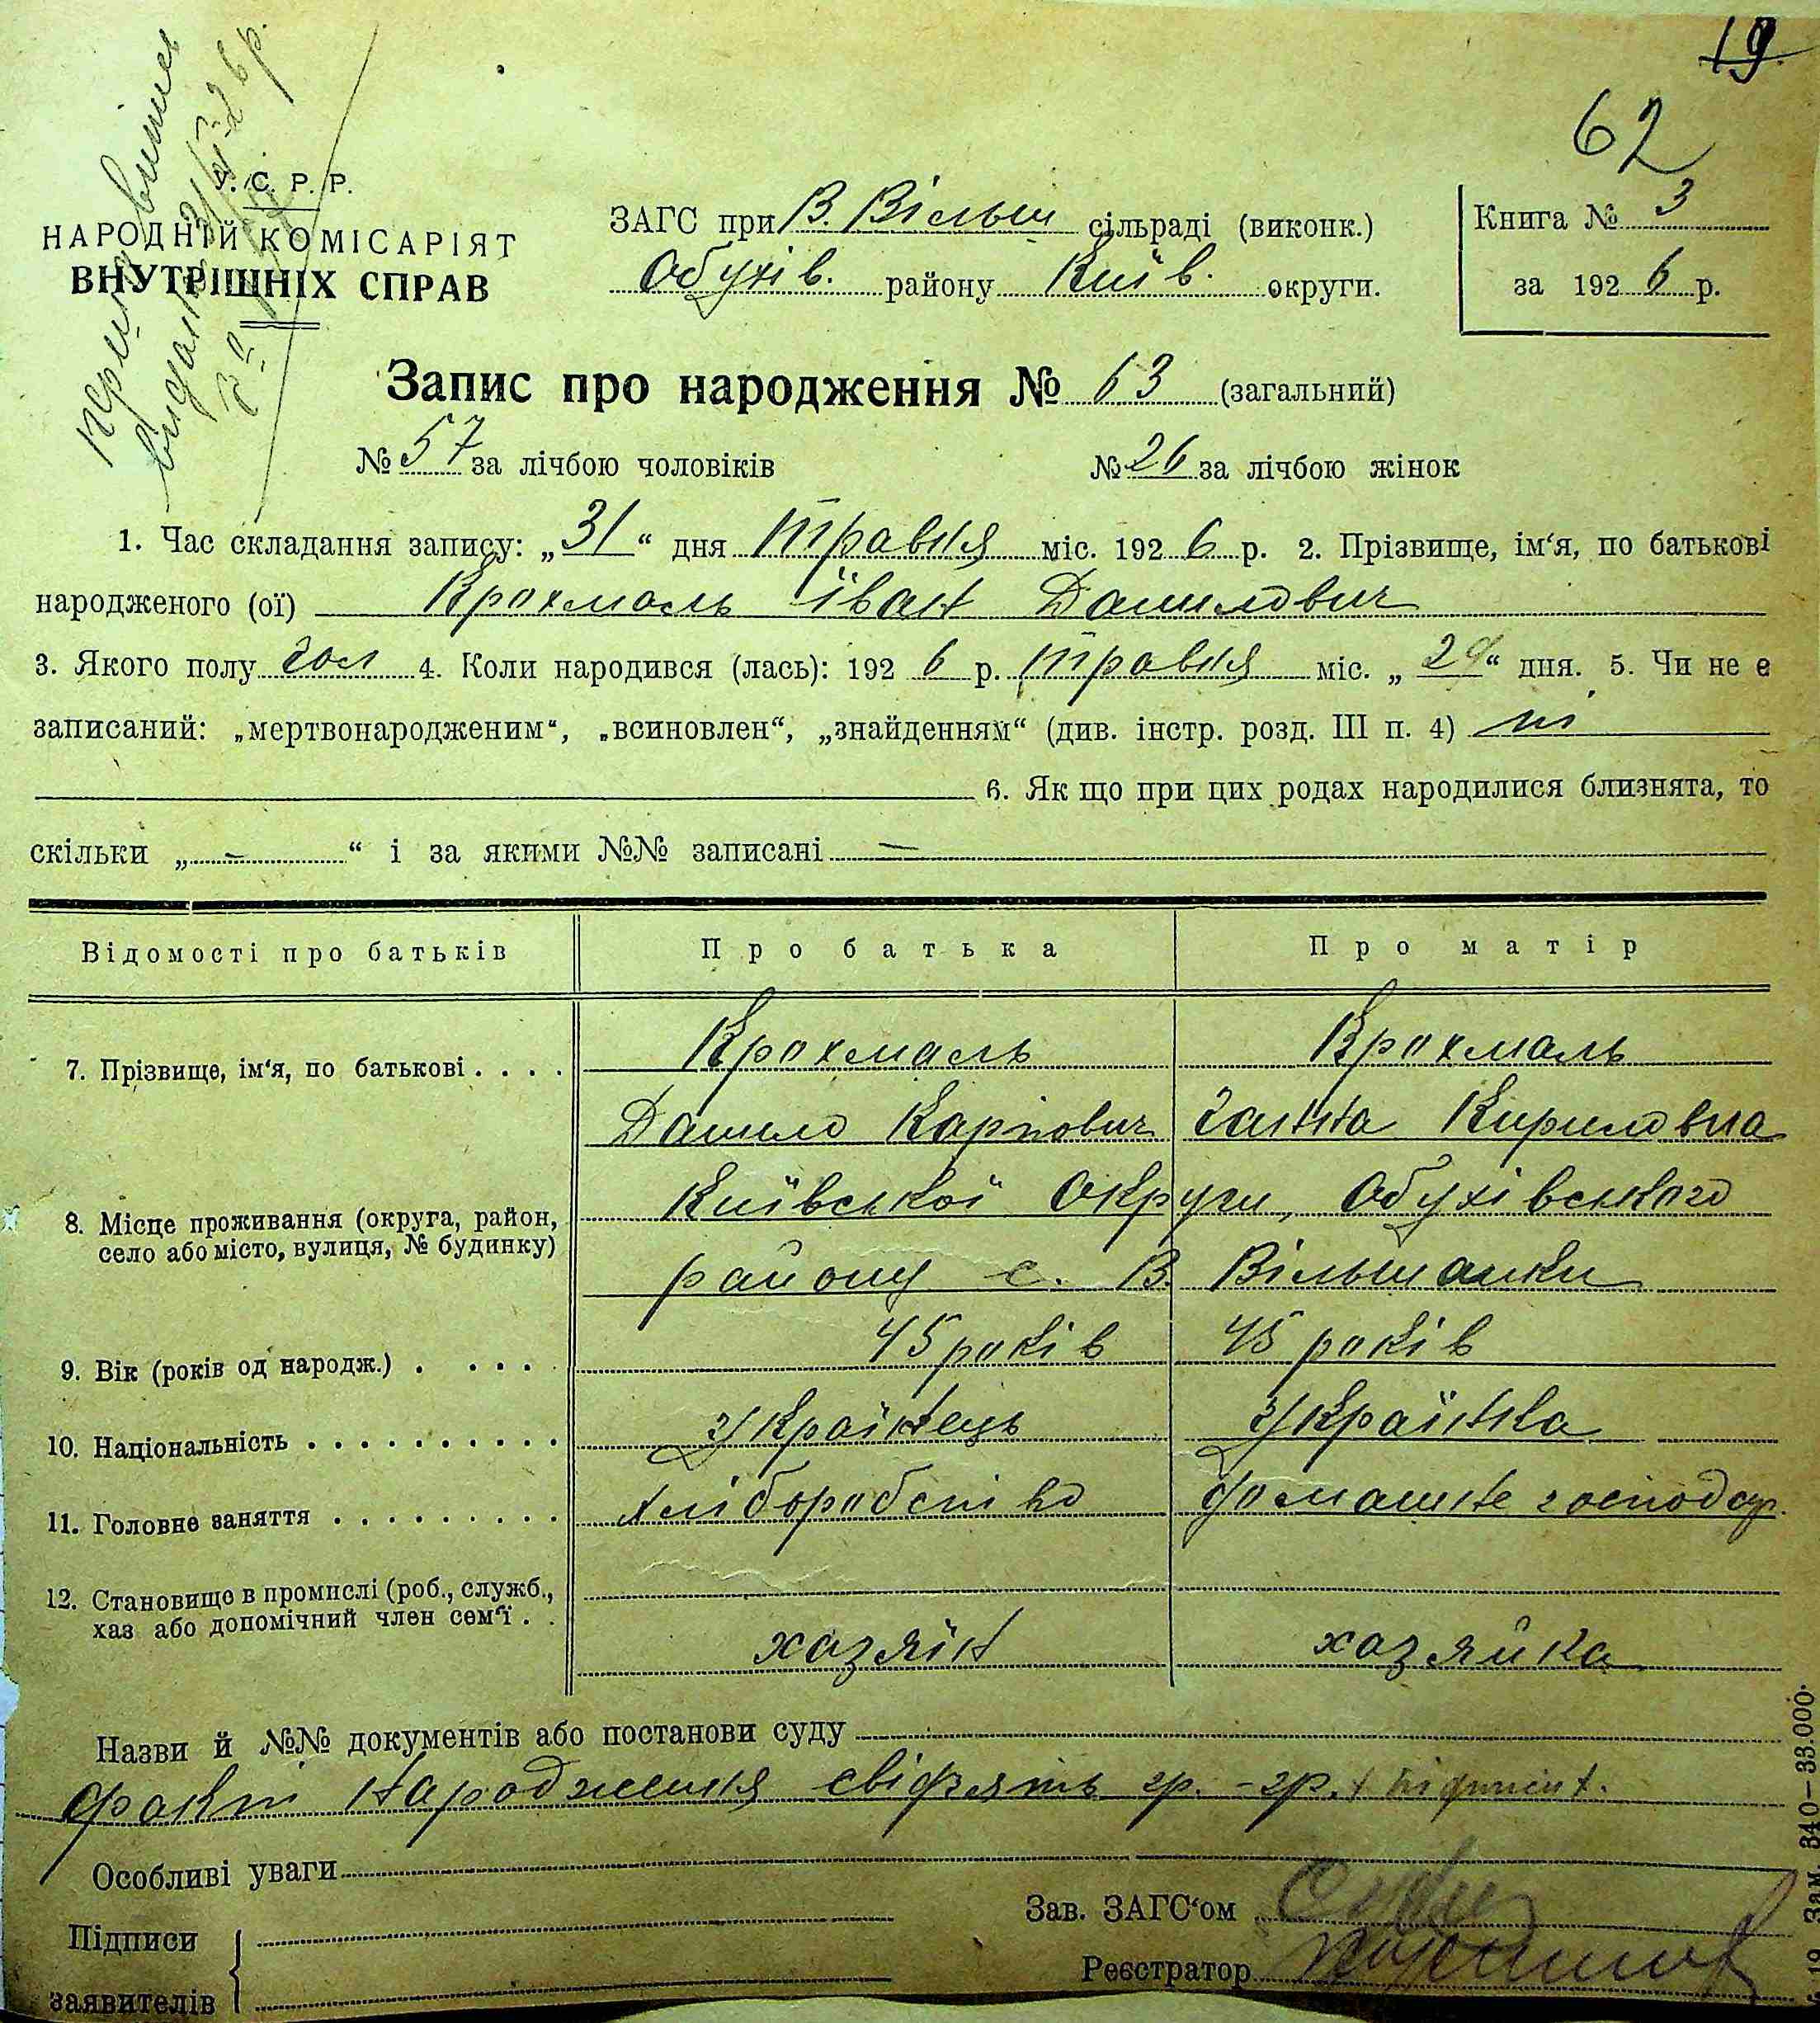 19.
62
У. С. Р. Р.
НАРОДНІЙ КОМІСАРІЯТ
ВНУТРІШНІХ СПРАВ
ЗАГС при В. Вільш сільраді (виконк.)
Обухів. району Київ. округи.
Книга № 3
за 1926 р.
Запис про народження № 63 (загальний)
№ 57 за лічбою чоловіків № 26 за лічбою жінок
1. Час складання запису: „31“ дня травня міс. 1926 р. 2. Прізвище, ім‘я, по батькові
народженого (ої) Крохмаль Іван Данилович
3. Якого полу чол 4. Коли народився (лась): 1926 р. травня міс. „29“ дня. 5. Чи не е
записаний: „мертвонародженим“, „всиновлен“, „знайденням“ (див. інстр. розд. III п. 4) ні
6. Як що при цих родах народилися близнята, то
скільки „ – “ і за якими №№ записані —
Відомості про батьків Про батька Про матір
7. Прізвище, ім‘я, по батькові . . . . Крохмаль Крохмаль
Данило Карпович Ганна Кириловна
8. Місце проживання (округа, район, Київської Округи, Обухівського
село або місто, вулиця, № будинку)
району с. В. Вільшанки
9. Вік (років од народж.) . . . . . 45 років 45 років
10. Національність . . . . . . . . . . Українець Українка
11. Головне заняття . . . . . . . . . хліборобство домашне господар.
12. Становище в промислі (роб., служб.,
хаз або допомічний член сем‘ї . .
хазяїн хазяйка
Назви й №№ документів або постанови суду
факт народження свідзять гр. - гр.
Особливі уваги
Зав. ЗАГС‘ом
Підписи
Реєстратор
заявителів
Зам. 340—33.000.